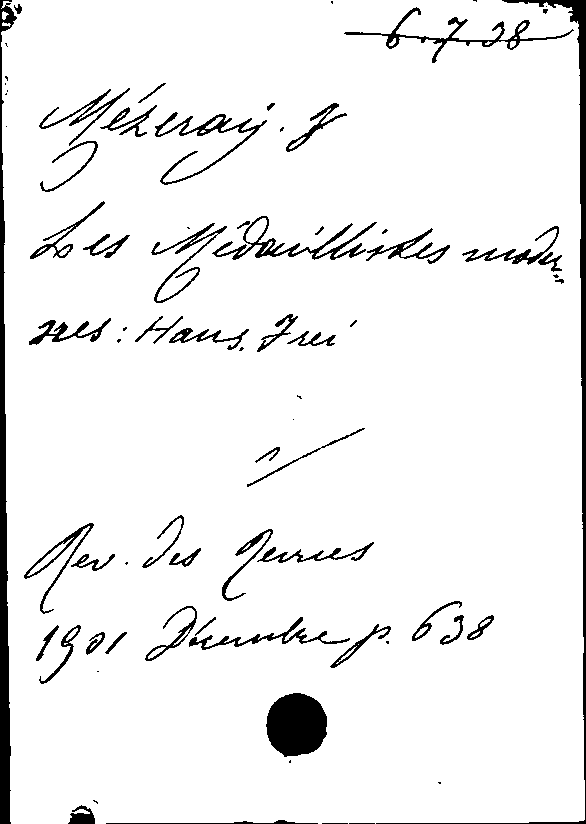 6.7.38
Mézeray. J
Les Médaillistes moder=
nes: Hans. Frei
Rev. des Revues
1901 Décembre p. 638